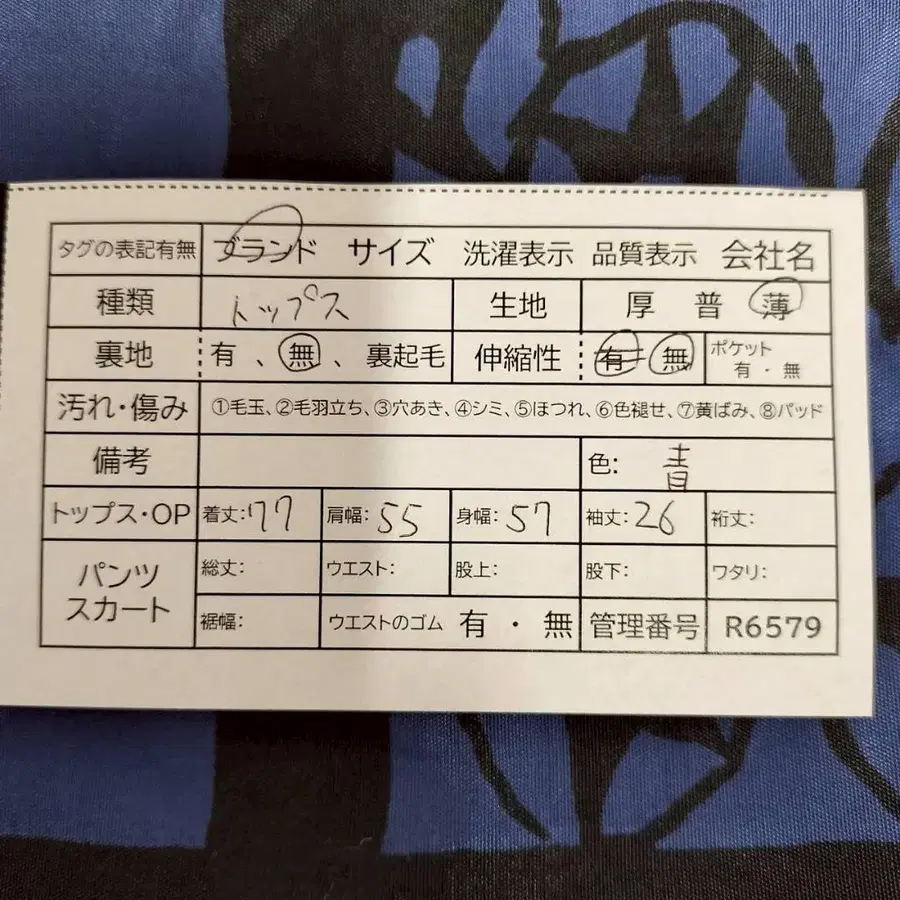 タグの表記有無 ブランド サイズ 洗濯表示 品質表示 会社名
種類 トップス 生地 厚 普 薄
裏地 有 、 無 、 裏起毛 伸縮性 有 無 ポケット 有 ・ 無
汚れ・傷み ①毛玉、②毛羽立ち、③穴あき、④シミ、⑤ほつれ、⑥色褪せ、⑦黄ばみ、⑧パッド
備考 色: 青
トップス・OP 着丈:77 肩幅:55 身幅:57 袖丈:26 裄丈:
パンツ スカート 総丈: ウエスト: 股上: 股下: ワタリ:
裾幅: ウエストのゴム 有 ・ 無 管理番号 R6579